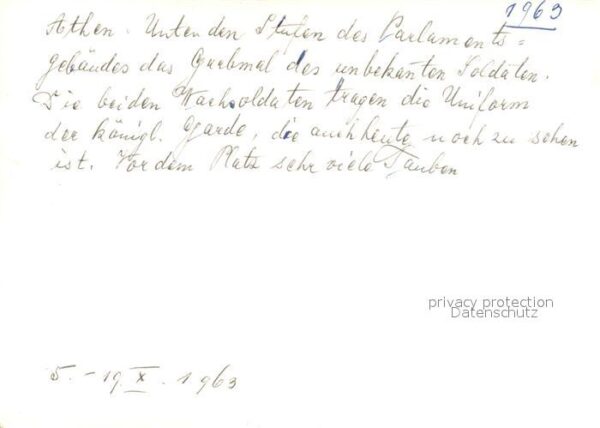 1963
Athen. Unter den Stufen des Parlaments=
gebäudes das Grabmal des unbekanten Soldaten.
Die beiden Wachsoldaten tragen die Uniform
der königl. Garde, die auch heute noch zu sehen
ist. Vor dem Platz sehr viele Tauben
privacy protection
Datenschutz
5. - 19. X. 1963